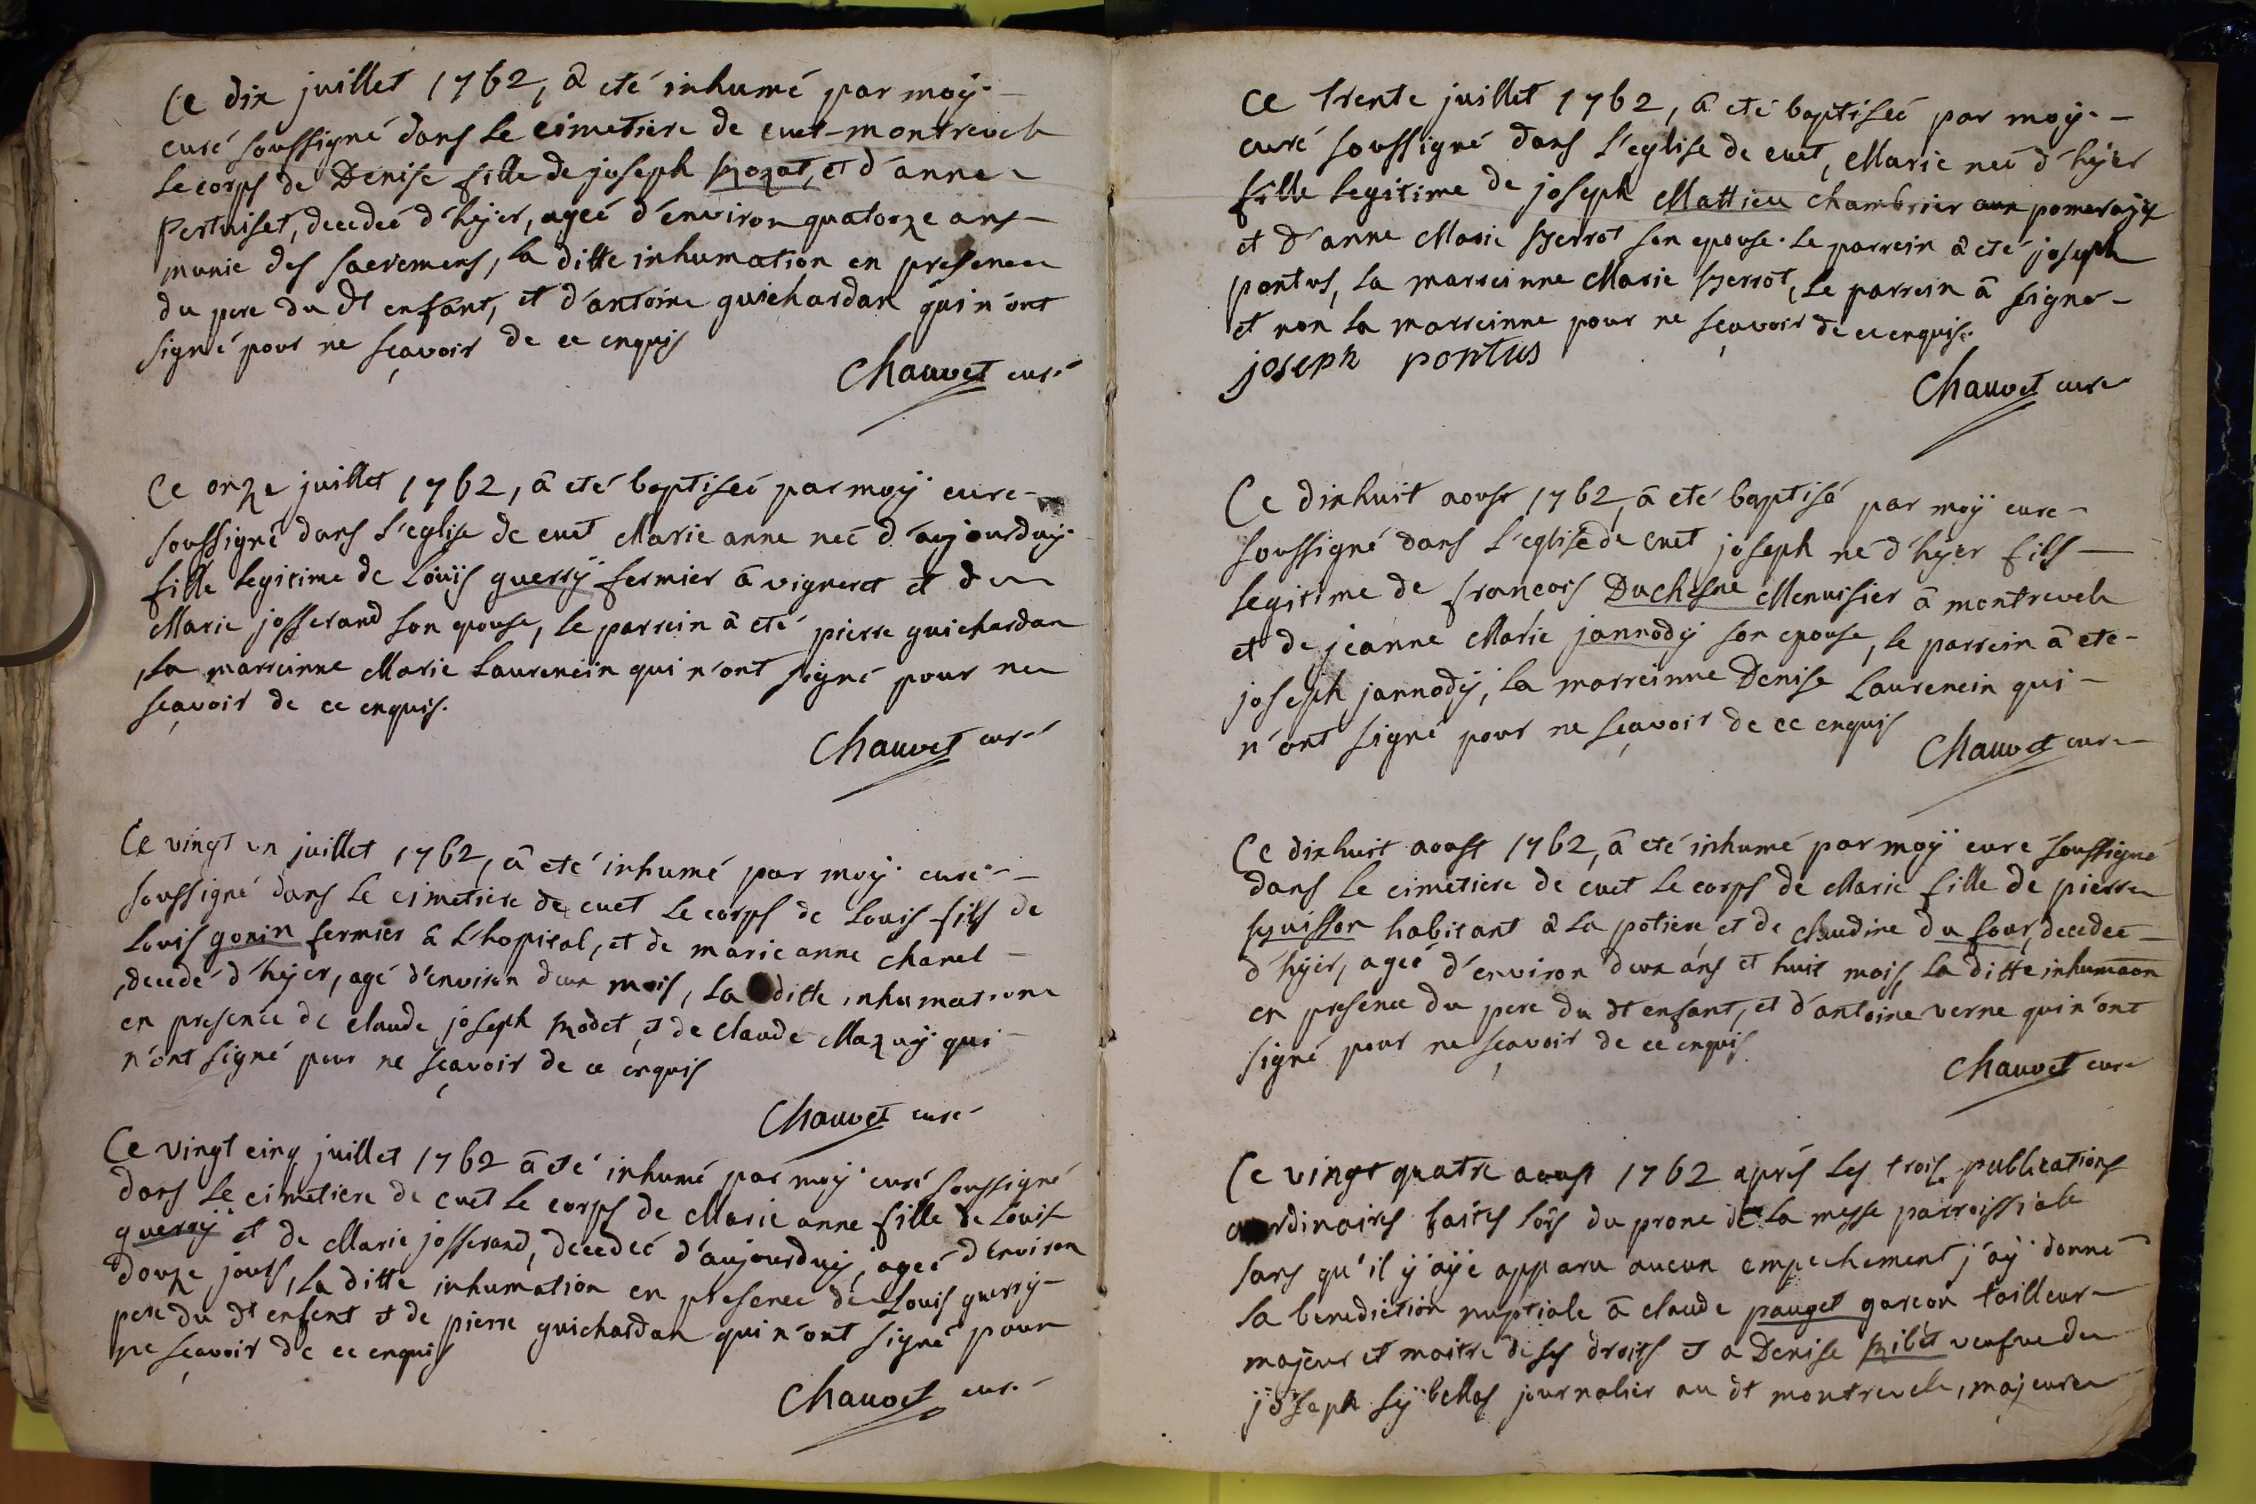 Ce dix juillet 1762, â eté inhumé par moÿ
curé soussigné dans le cimetiere de cuet-montrevel
le corps de Denise fille de joseph mozat, et d'anne
Pertuiset, decedeé d'hÿer, ageé d'environ quatorze ans
munie des sacremens, la ditte inhumation en presence
du pere du dt enfant, et d'antoine guichardan qui n'ont
signé pour ne sçavoir de ce enquis
Chauvet curé
Ce onze juillet 1762, â eté baptiseé par moÿ curé
soussigné dans l'eglise de cuet Marie anne neé d'aujourduÿ
fille legitime de Loüis guerrÿ fermier â vigneret et de
Marie josserand son epouse, le parrein â eté pierre guichardan
la marreinne Marie Laurencin qui n'ont signé pour ne
sçavoir de ce enquis.
Chauvet curé
Ce vingt un juillet 1762, â eté inhumé par moÿ curé
soussigné dans le cimetiere de cuet le corps de Louis fils de
Louis gonin fermier â l'hopital, et de marie anne chanel
decedé d'hÿer, agé d'environ deux mois, la ditte inhumation
en presence de claude joseph modet, et de claude Mazuÿ qui
n'ont signé pour ne sçavoir de ce enquis
Chauvet curé
Ce vingt cinq juillet 1762 â eté inhumé par moÿ curé soussigné
dans le cimetiere de cuet le corps de Marie anne fille de Louis
guerrÿ et de Marie josserand, decedeé d'aujourduÿ, ageé d'environ
douze jours, la ditte inhumation en presence de Louis guerrÿ
pere du dt enfent et de pierre guichardan qui n'ont signé pour
ne sçavoir de ce enquis
Chauvet curé
Ce trente juillet 1762, â eté baptiseé par moÿ
curé soussigné dans l'eglise de cuet, Marie neé d'hÿer
fille legitime de joseph Mattieu chambrier aux
et d'anne Marie son epouse. le parrein â eté joseph
pontus, la marreinne Marie, le parrein â signé
et non la marreinne pour ne sçavoir de ce enquis.
joseph pontus
Chauvet curé
Ce dixhuit aoust 1762, â eté baptisé par moÿ curé
soussigné dans l'eglise de cuet joseph né d'hÿer fils
legitime de françois Duchesne Menuisier â montrevel
et de jeanne Marie jannodÿ son epouse, le parrein â eté
joseph jannodÿ, la marreinne Denise Laurencin qui
n'ont signé pour ne sçavoir de ce enquis
Chauvet curé
Ce dixhuit aoust 1762, â eté inhumé par moÿ curé soussigné
dans le cimetiere de cuet le corps de Marie fille de pierre
habitant â la potiere et de claudine du four, decedeé
d'hÿer, ageé d'environ deux ans et huit mois, la ditte inhumaon
en presence du pere du dt enfant, et d'antoine verne qui n'ont
signé pour ne sçavoir de ce enquis
Chauvet curé
Ce vingt quatre aoust 1762 aprés les trois publications
ordinaires faites lors du prone de la messe parroissiale
sans qu'il ÿ aÿe apparu aucun empechement j'aÿ donné
la benediction nuptiale â claude pauget garçon tailleur
majeur et maitre de ses droits et a Denise veufve de
joseph journalier au dt montrevel, majeure